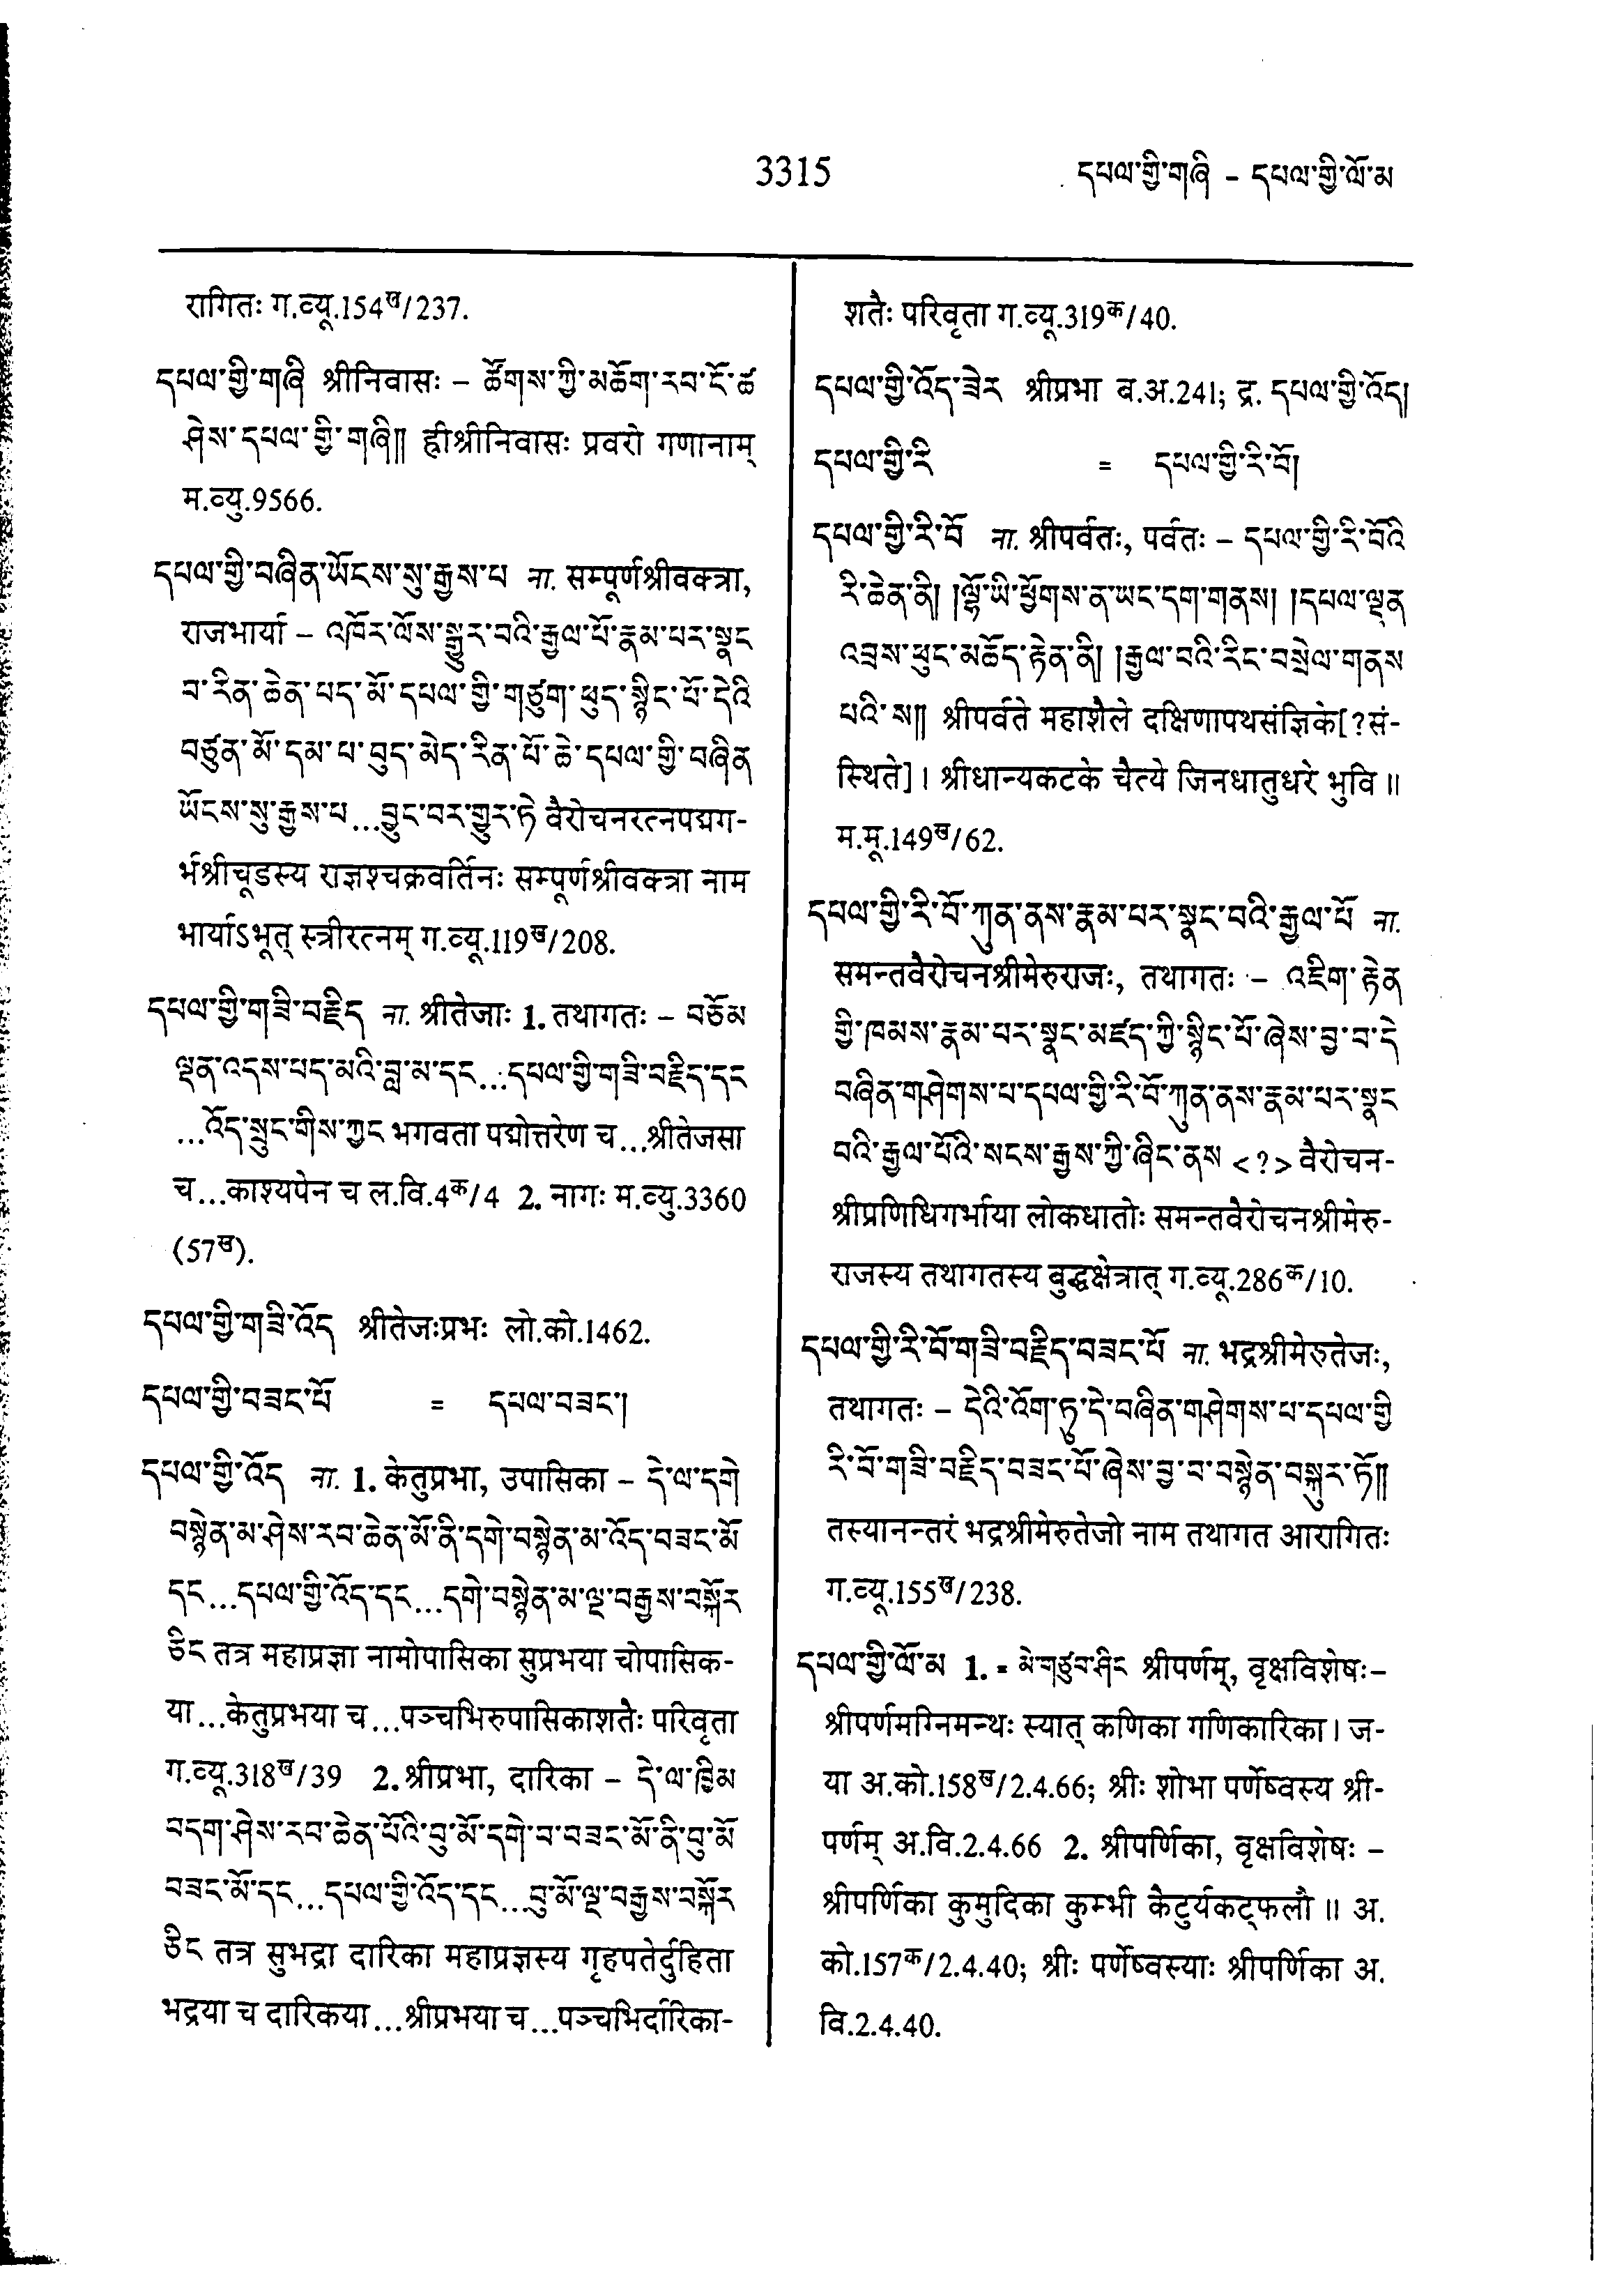 3315
དཔལ་གྱི་གཞི – དཔལ་གྱི་ལོ་མ
रागितः ग.व्यू.154ख/237.
དཔལ་གྱི་གཞི श्रीनिवासः – ཚོགས་ཀྱི་མཆོག་རབ་ངོ་ཚ
ཤེས་དཔལ་གྱི་གཞི།། ह्रीश्रीनिवासः प्रवरो गणानाम्
म.व्यु.9566.
དཔལ་གྱི་བཞིན་ཡོངས་སུ་རྒྱས་པ ना. सम्पूर्णश्रीवक्त्रा,
राजभार्या – འཁོར་ལོས་སྒྱུར་བའི་རྒྱལ་པོ་རྣམ་པར་སྣང
བ་རིན་ཆེན་པད་མོ་དཔལ་གྱི་གཙུག་ཕུད་སྙིང་པོ་དེའི
བཙུན་མོ་དམ་པ་བུད་མེད་རིན་པོ་ཆེ་དཔལ་གྱི་བཞིན
ཡོངས་སུ་རྒྱས་པ...བྱུང་བར་གྱུར་ཏེ वैरोचनरत्नपद्मग-
र्भश्रीचूडस्य राज्ञश्चक्रवर्तिनः सम्पूर्णश्रीवक्त्रा नाम
भार्याऽभूत् स्त्रीरत्नम् ग.व्यू.119ख/208.
དཔལ་གྱི་གཟི་བརྗིད ना. श्रीतेजाः 1. तथागतः – བཅོམ
ལྡན་འདས་པད་མའི་བླ་མ་དང...དཔལ་གྱི་གཟི་བརྗིད་དང
...འོད་སྲུང་གིས་ཀྱང भगवता पद्मोत्तरेण च...श्रीतेजसा
च...काश्यपेन च ल.वि.4क/4 2. नागः म.व्यु.3360
(57ख).
དཔལ་གྱི་གཟི་འོད श्रीतेजःप्रभः लो.को.1462.
དཔལ་གྱི་བཟང་པོ = དཔལ་བཟང་།
དཔལ་གྱི་འོད ना. 1. केतुप्रभा, उपासिका – དེ་ལ་དགེ
བསྙེན་མ་ཤེས་རབ་ཆེན་མོ་ནི་དགེ་བསྙེན་མ་འོད་བཟང་མོ
དང...དཔལ་གྱི་འོད་དང...དགེ་བསྙེན་མ་ལྔ་བརྒྱས་བསྐོར
ཅིང तत्र महाप्रज्ञा नामोपासिका सुप्रभया चोपासिक-
या...केतुप्रभया च...पञ्चभिरुपासिकाशतैः परिवृता
ग.व्यू.318ख/39 2. श्रीप्रभा, दारिका – དེ་ལ་ཁྱིམ
བདག་ཤེས་རབ་ཆེན་པོའི་བུ་མོ་དགེ་བ་བཟང་མོ་ནི་བུ་མོ
བཟང་མོ་དང...དཔལ་གྱི་འོད་དང...བུ་མོ་ལྔ་བརྒྱས་བསྐོར
ཅིང तत्र सुभद्रा दारिका महाप्रज्ञस्य गृहपतेर्दुहिता
भद्रया च दारिकया...श्रीप्रभया च...पञ्चभिर्दारिका-
शतैः परिवृता ग.व्यू.319क/40.
དཔལ་གྱི་འོད་ཟེར श्रीप्रभा ब.अ.241; द्र. དཔལ་གྱི་འོད།
དཔལ་གྱི་རི = དཔལ་གྱི་རི་བོ།
དཔལ་གྱི་རི་བོ ना. श्रीपर्वतः, पर्वतः – དཔལ་གྱི་རི་བོའི
རི་ཆེན་ནི། །ལྷོ་ཡི་ཕྱོགས་ན་ཡང་དག་གནས། །དཔལ་ལྡན
འབྲས་ཕུང་མཆོད་རྟེན་ནི། །རྒྱལ་བའི་རིང་བསྲེལ་གནས
པའི་ས།། श्रीपर्वते महाशैले दक्षिणापथसंज्ञिके[?सं-
स्थिते]। श्रीधान्यकटके चैत्ये जिनधातुधरे भुवि॥
म.मू.149ख/62.
དཔལ་གྱི་རི་བོ་ཀུན་ནས་རྣམ་པར་སྣང་བའི་རྒྱལ་པོ ना.
समन्तवैरोचनश्रीमेरुराजः, तथागतः – འཇིག་རྟེན
གྱི་ཁམས་རྣམ་པར་སྣང་མཛད་ཀྱི་སྙིང་པོ་ཞེས་བྱ་བ་དེ
བཞིན་གཤེགས་པ་དཔལ་གྱི་རི་བོ་ཀུན་ནས་རྣམ་པར་སྣང
བའི་རྒྱལ་པོའི་སངས་རྒྱས་ཀྱི་ཞིང་ནས <?> वैरोचन-
श्रीप्रणिधिगर्भाया लोकधातोः समन्तवैरोचनश्रीमेरु-
राजस्य तथागतस्य बुद्धक्षेत्रात् ग.व्यू.286क/10.
དཔལ་གྱི་རི་བོ་གཟི་བརྗིད་བཟང་པོ ना. भद्रश्रीमेरुतेजः,
तथागतः – དེའི་འོག་ཏུ་དེ་བཞིན་གཤེགས་པ་དཔལ་གྱི
རི་བོ་གཟི་བརྗིད་བཟང་པོ་ཞེས་བྱ་བ་བསྙེན་བསྐུར་ཏོ།།
तस्यानन्तरं भद्रश्रीमेरुतेजो नाम तथागत आरागितः
ग.व्यू.155ख/238.
དཔལ་གྱི་ལོ་མ 1. = མེ་གཙུབ་ཤིང श्रीपर्णम्, वृक्षविशेषः–
श्रीपर्णमग्निमन्थः स्यात् कणिका गणिकारिका। ज-
या अ.को.158ख/2.4.66; श्रीः शोभा पर्णेष्वस्य श्री-
पर्णम् अ.वि.2.4.66 2. श्रीपर्णिका, वृक्षविशेषः –
श्रीपर्णिका कुमुदिका कुम्भी कैटुर्यकट्फलौ॥ अ.
को.157क/2.4.40; श्रीः पर्णेष्वस्याः श्रीपर्णिका अ.
वि.2.4.40.